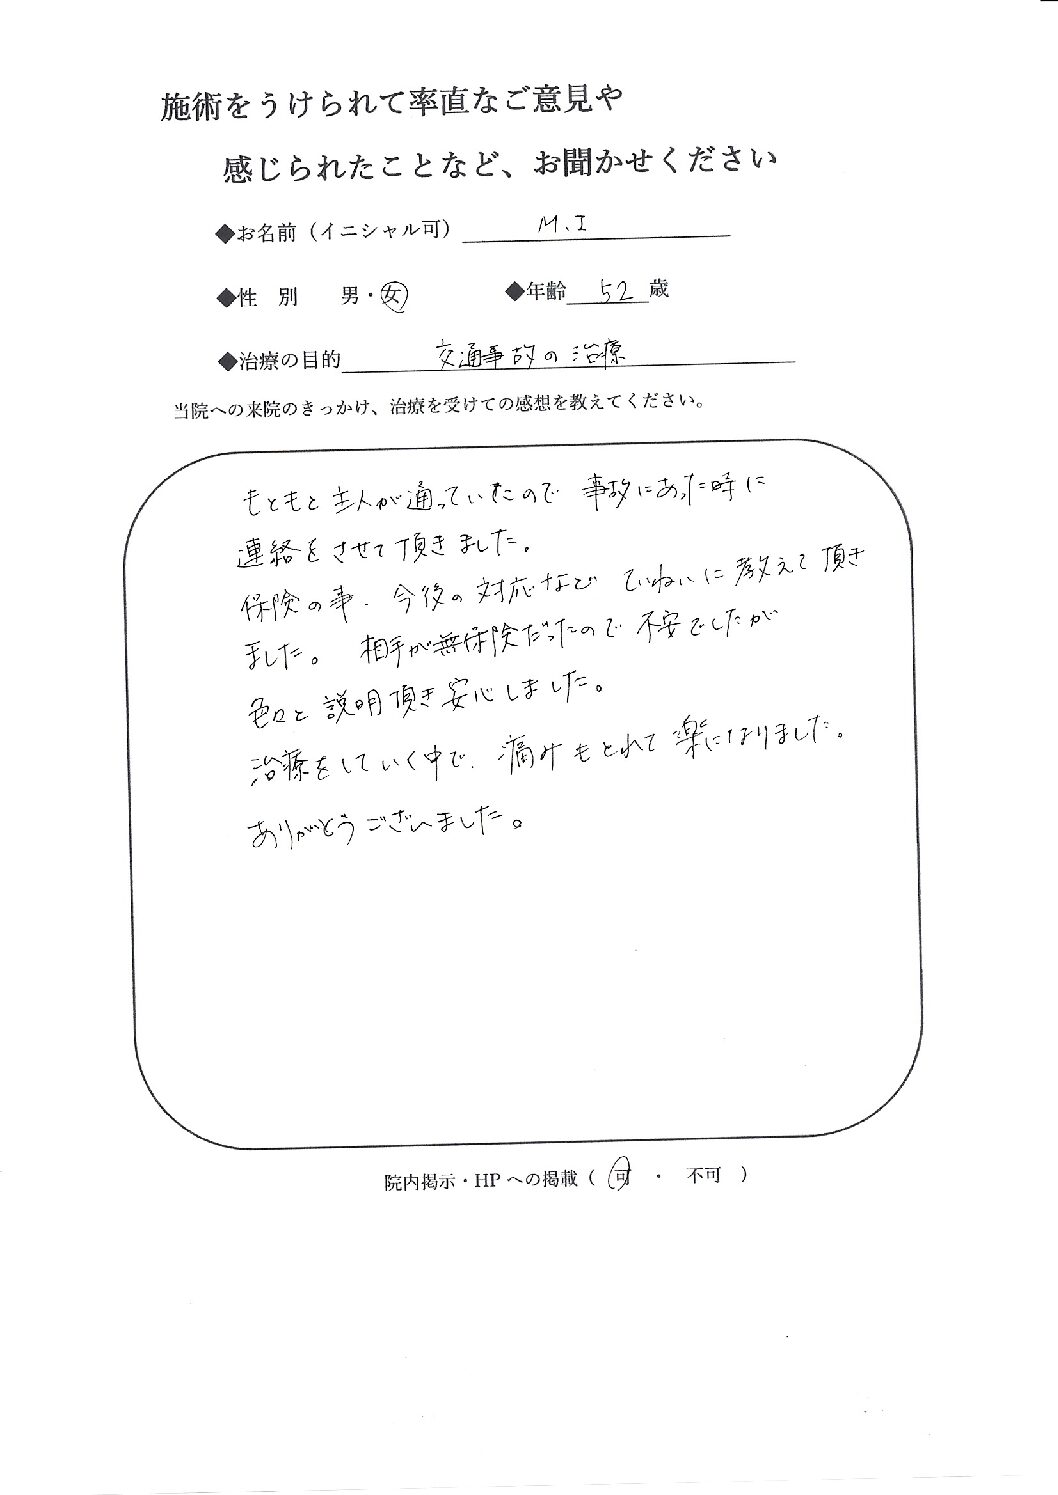 施術をうけられて率直なご意見や
感じられたことなど、お聞かせください
◆お名前（イニシャル可） M.I
◆性 別 男・女 ◆年齢 52 歳
◆治療の目的 交通事故の治療
当院への来院のきっかけ、治療を受けての感想を教えてください。
もともと主人が通っていたので 事故にあった時に
連絡をさせて頂きました。
保険の事、今後の対応など ていねいに教えて頂き
ました。 相手が無保険だったので 不安でしたが
色々と説明頂き安心しました。
治療をしていく中で、痛みもとれて楽になりました。
ありがとうございました。
院内掲示・HPへの掲載（ 可 ・ 不可 ）